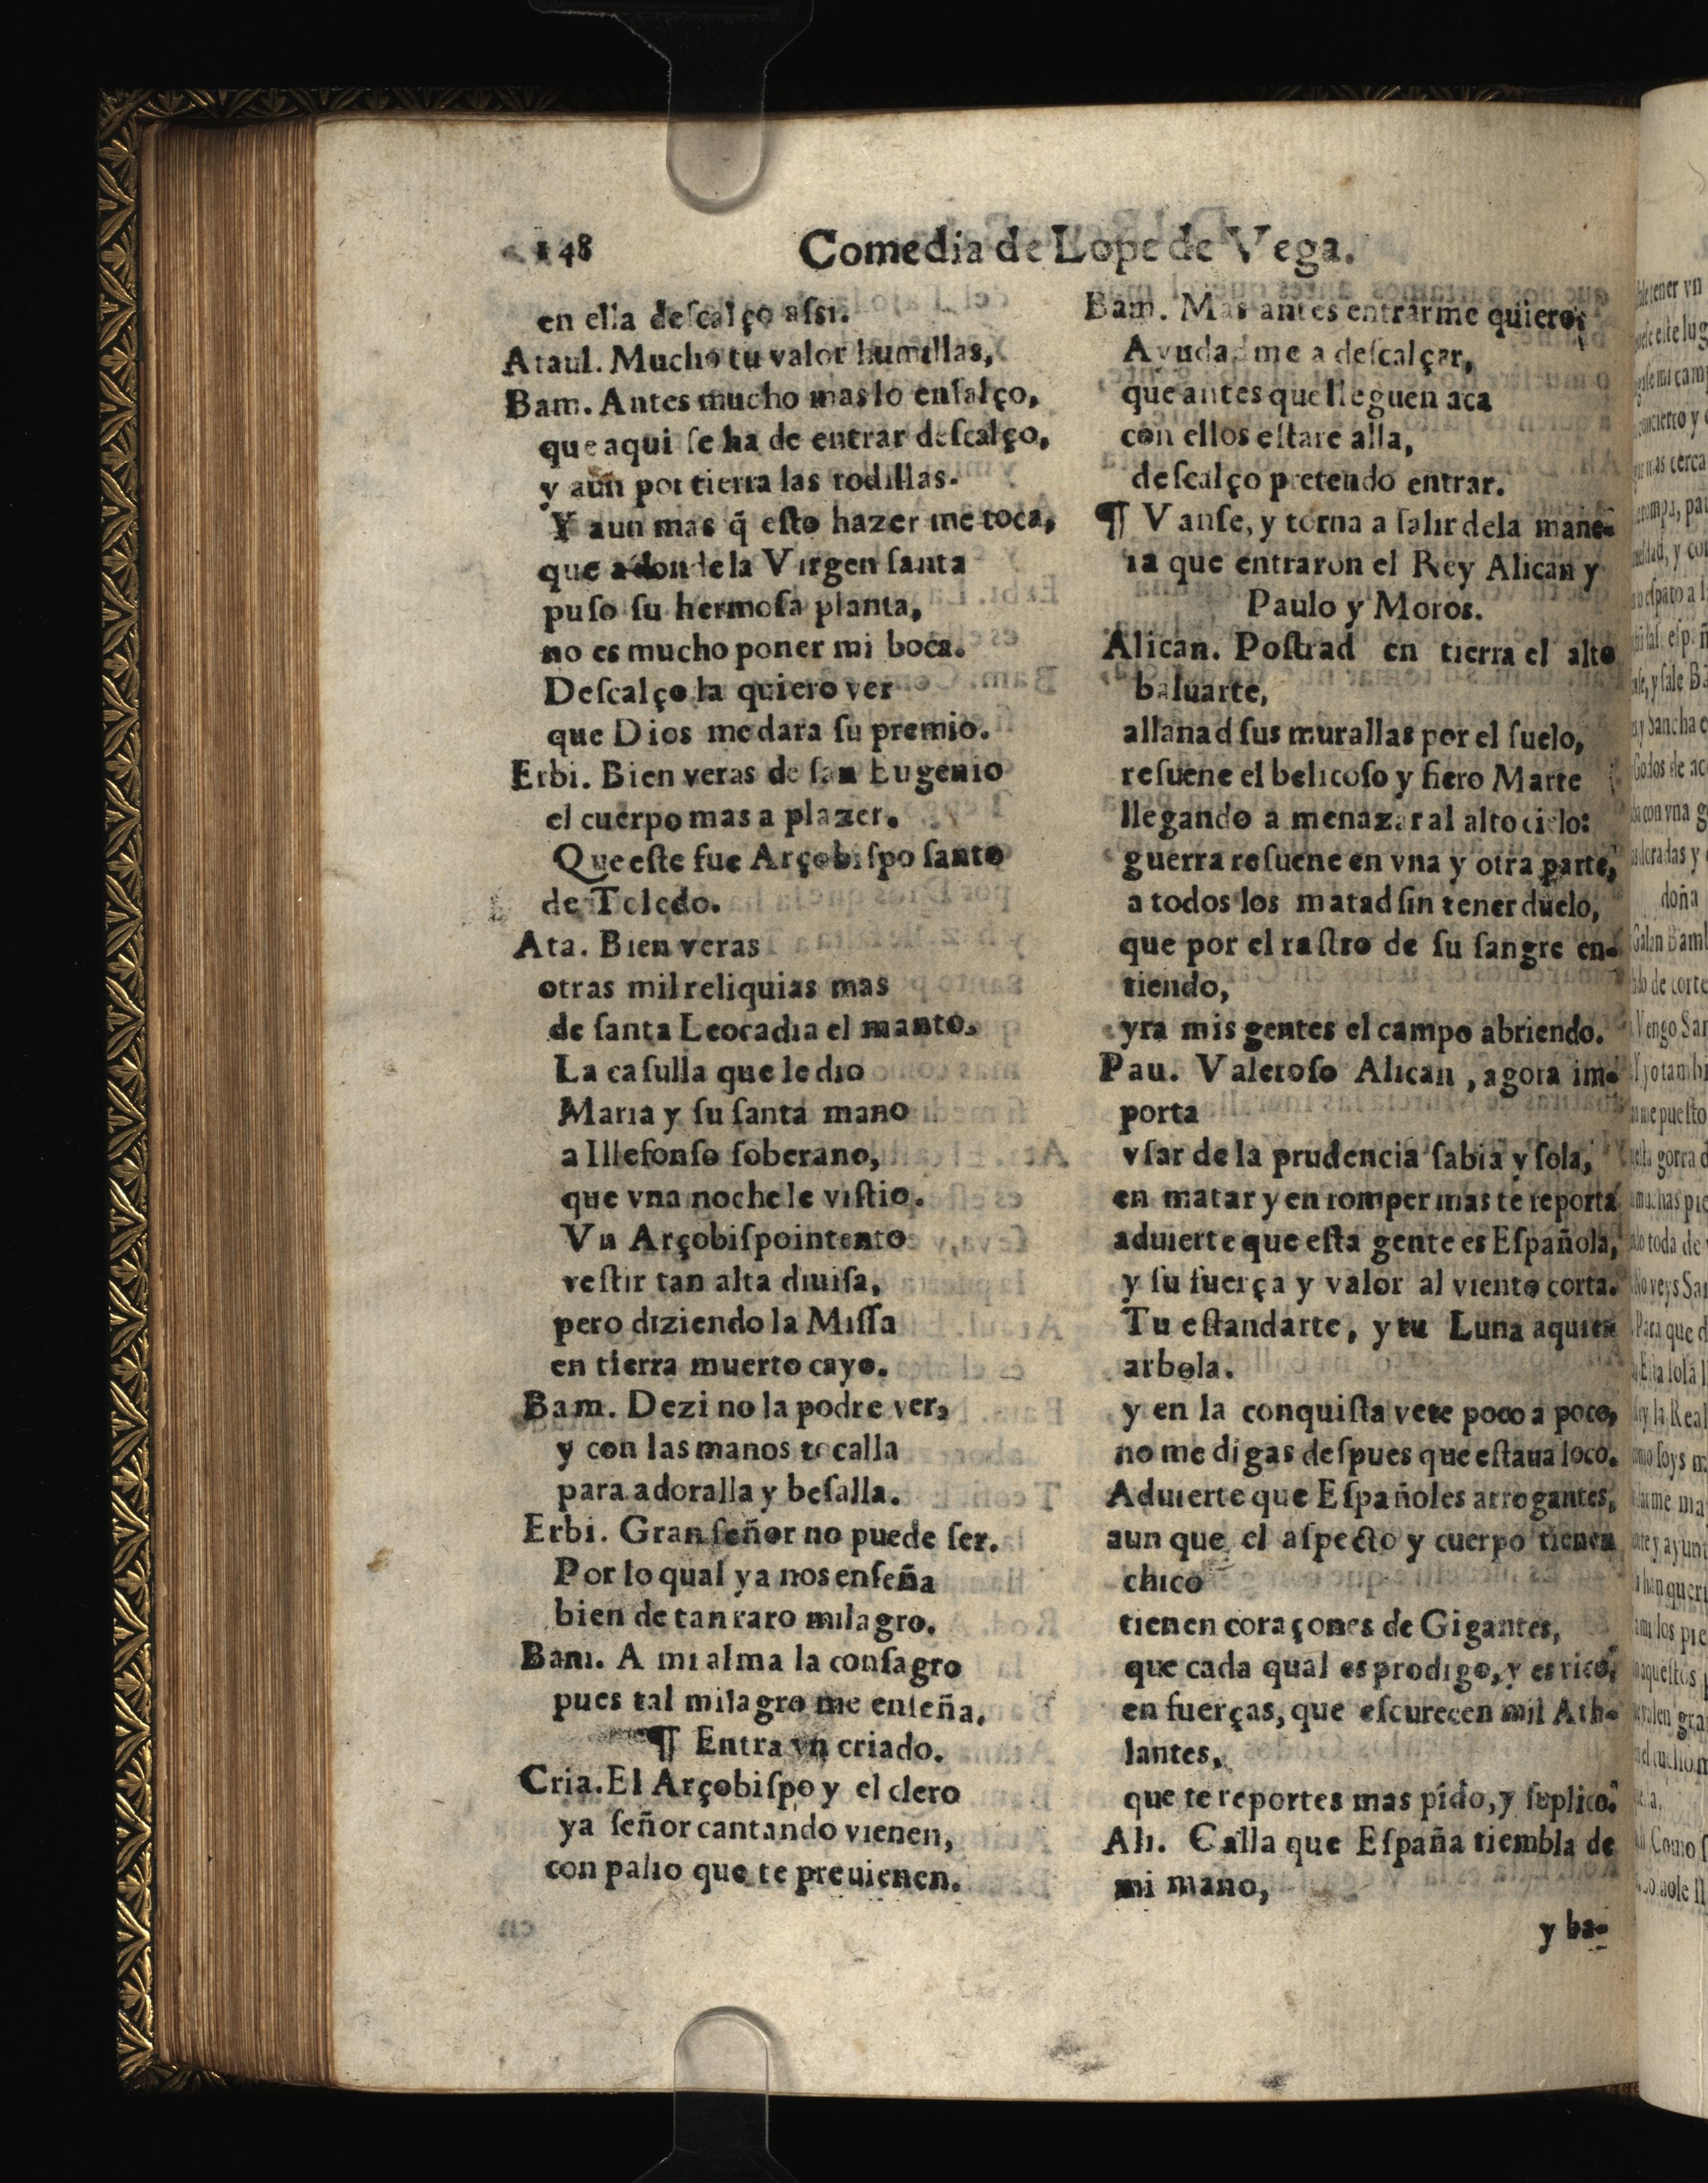 148 Comedia de Lope de Vega.
en ella deſcalço aſsi.
Ataul. Mucho tu valor humillas,
Bam. Antes mucho mas lo enſalço,
que aqui ſe ha de entrar deſcalço,
y aun por tierra las rodillas.
Y aun mas q̃ eſto hazer me toca,
que adonde la Virgen ſanta
puſo ſu hermoſa planta,
no es mucho poner mi boca.
Deſcalço la quiero ver
que Dios me dara ſu premio.
Erbi. Bien veras de ſan Eugenio
el cuerpo mas a plazer.
Que eſte fue Arçobiſpo ſanto
de Toledo.
Ata. Bien veras
otras mil reliquias mas
de ſanta Leocadia el manto.
La caſulla que le dio
Maria y ſu ſanta mano
a Illefonſo ſoberano,
que vna noche le viſtio.
Vn Arçobiſpo intento
veſtir tan alta diuiſa,
pero diziendo la Miſſa
en tierra muerto cayo.
Bam. Dezi no la podre ver,
y con las manos tocalla
para adoralla y beſalla.
Erbi. Gran ſeñor no puede ſer.
Por lo qual ya nos enſeña
bien de tan raro milagro.
Bam. A mi alma la conſagro
pues tal milagro me enſeña.
¶ Entra vn criado.
Cria. El Arçobiſpo y el clero
ya ſeñor cantando vienen,
con palio que te preuienen.
Bam. Mas antes entrarme quiero,
Ayudadme a deſcalçar,
que antes que lleguen aca
con ellos eſtare alla,
deſcalço pretendo entrar.
¶ Vanſe, y torna a ſalir dela mane-
ra que entraron el Rey Alican y
Paulo y Moros.
Alican. Poſtrad en tierra el alto
baluarte,
allanad ſus murallas por el ſuelo,
reſuene el belicoſo y fiero Marte
llegando a menazar al alto cielo:
guerra reſuene en vna y otra parte,
a todos los matad ſin tener duelo,
que por el raſtro de ſu ſangre en-
tiendo,
yra mis gentes el campo abriendo.
Pau. Valeroſo Alican, agora im-
porta
vſar de la prudencia ſabia y ſola,
en matar y en romper mas te reporta
aduierte que eſta gente es Eſpañola,
y ſu fuerça y valor al viento corta.
Tu eſtandarte, y tu Luna aqui
arbola.
y en la conquiſta vete poco a poco,
no me digas deſpues que eſtaua loco.
Aduierte que Eſpañoles arrogantes,
aun que el aſpecto y cuerpo tienen
chico
tienen coraçones de Gigantes,
que cada qual es prodigo, y es rico,
en fuerças, que eſcurecen mil Ath-
lantes,
que te reportes mas pido, y ſuplico.
Ali. Calla que Eſpaña tiembla de
mi mano,
y ba-